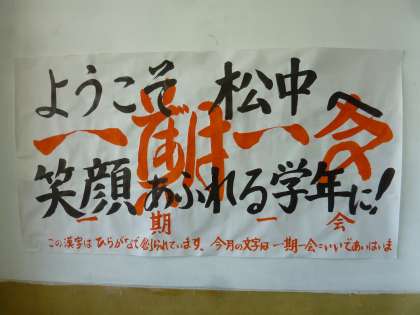 ようこそ 松中へ
一期一会
笑顔あふれる学年に!
一期一会
この漢字はひらがなで創られています。今月の文字は一期一会=いいであいはいま